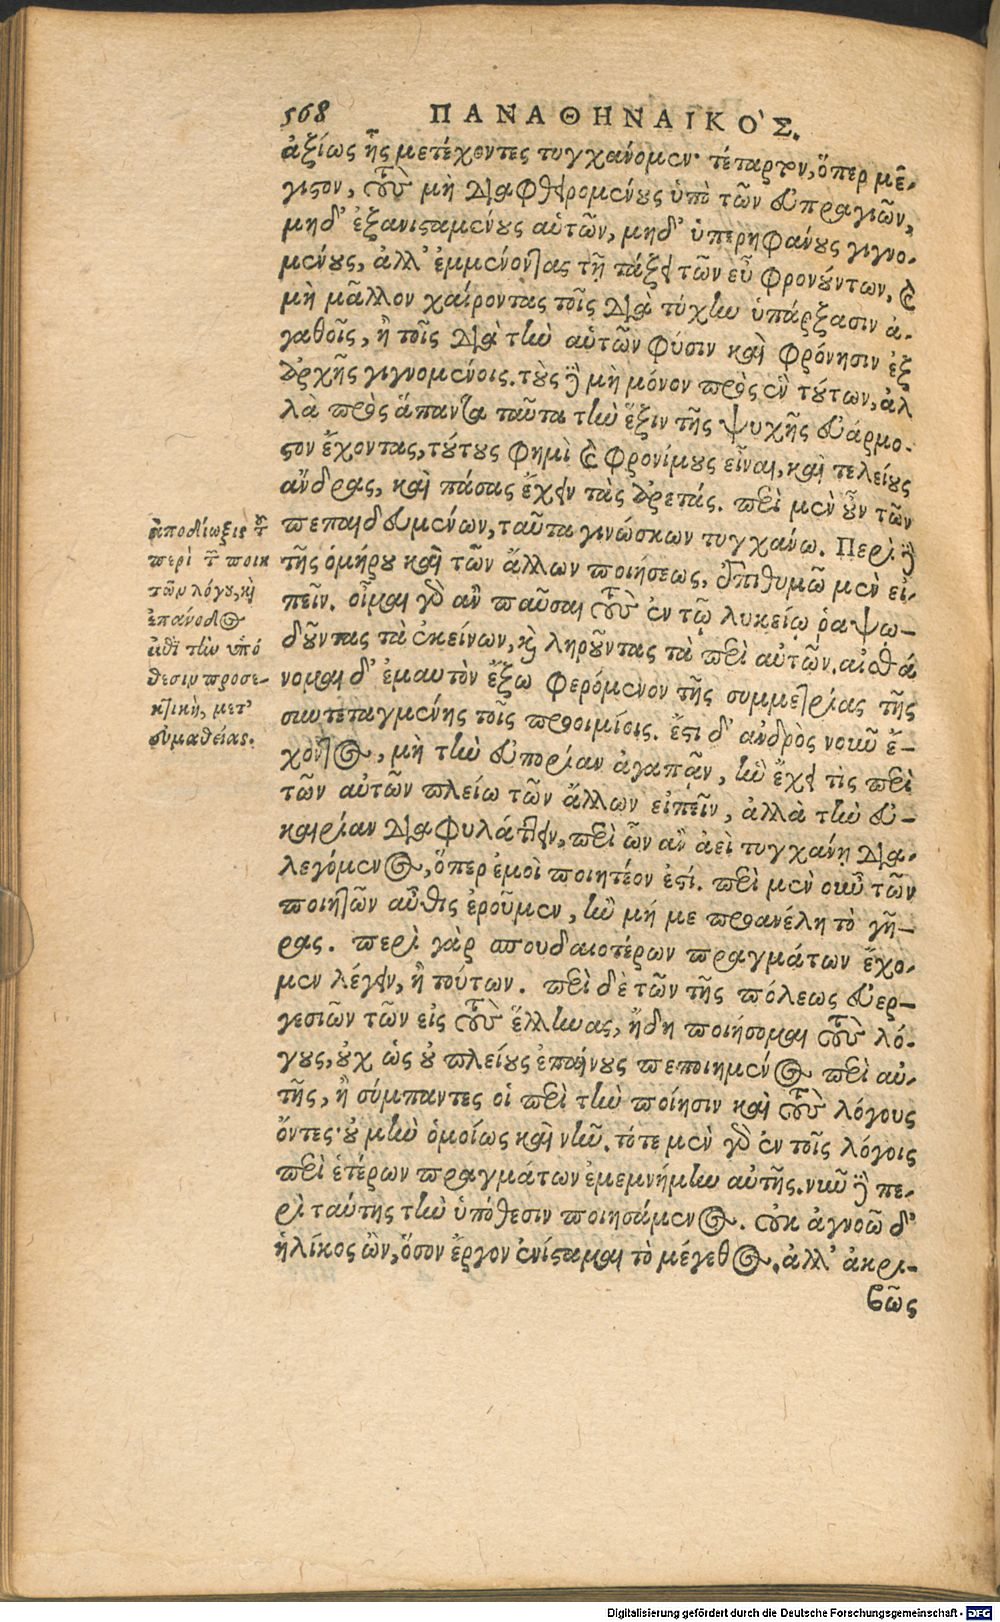 568 ΠΑΝΑΘΗΝΑΙΚΟ`Σ.
ἀξίως ἧς μετέχοντες τυγχάνομεν· τέταρτον, ὅπερ μέ-
γιστον, τοὺς μὴ διαφθειρομένους ὑπὸ τῶν εὐπραγιῶν,
μηδ' ἐξανισταμένους αὑτῶν, μηδ' ὑπερηφάνους γιγνο-
μένους, ἀλλ' ἐμμένοντας τῇ τάξει τῶν εὖ φρονούντων, καὶ
μὴ μᾶλλον χαίροντας τοῖς διὰ τύχην ὑπάρξασιν ἀ-
γαθοῖς, ἢ τοῖς διὰ τὴν αὑτῶν φύσιν καὶ φρόνησιν ἐξ
ἀρχῆς γιγνομένοις. τοὺς δὲ μὴ μόνον πρὸς ἓν τούτων, ἀλ
λὰ πρὸς ἅπαντα ταῦτα τὴν ἕξιν τῆς ψυχῆς εὐάρμο-
στον ἔχοντας, τούτους φημὶ καὶ φρονίμους εἶναι, καὶ τελείους
ἄνδρας, καὶ πάσας ἔχειν τὰς ἀρετάς. περὶ μὲν οὖν τῶν
πεπαιδευμένων, ταῦτα γινώσκων τυγχάνω. Περὶ δὲ
τῆς ὁμήρου καὶ τῶν ἄλλων ποιήσεως, ἐπιθυμῶ μὲν εἰ-
πεῖν. οἶμαι γὰρ ἂν παῦσαι τοὺς ἐν τῷ λυκείῳ ῥαψῳ-
δοῦντας τὰ ἐκείνων, καὶ ληροῦντας τὰ περὶ αὐτῶν. αἰσθά
νομαι δ' ἐμαυτὸν ἔξω φερόμενον τῆς συμμετρίας τῆς
συντεταγμένης τοῖς προοιμίοις. ἔστι δ' ἀνδρὸς νοῦν ἔ-
χοντος, μὴ τὴν εὐπορίαν ἀγαπᾷν, ἣν ἔχει τὶς περὶ
τῶν αὐτῶν πλείω τῶν ἄλλων εἰπεῖν, ἀλλὰ τὴν εὐ-
καιρίαν διαφυλάττειν, περὶ ὧν ἂν ἀεὶ τυγχάνῃ δια-
λεγόμενος, ὅπερ ἐμοὶ ποιητέον ἐστί. περὶ μὲν οὖν τῶν
ποιητῶν αὖθις ἐροῦμεν, ἢν μή με προανέλῃ τὸ γῆ-
ρας. περὶ γὰρ σπουδαιοτέρων πραγμάτων ἔχο-
μεν λέγειν, ἢ τούτων. περὶ δὲ τῶν τῆς πόλεως εὐερ-
γεσιῶν τῶν εἰς τοὺς ἕλληνας, ἤδη ποιήσομαι τοὺς λό-
γους, οὐχ ὡς οὐ πλείους ἐπαίνους πεποιημένος περὶ αὐ-
τῆς, ἢ σύμπαντες οἱ περὶ τὴν ποίησιν καὶ τοὺς λόγους
ὄντες· οὐ μὴν ὁμοίως καὶ νῦν. τότε μὲν γὰρ ἐν τοῖς λόγοις
περὶ ἑτέρων πραγμάτων ἐμεμνήμην αὐτῆς. νῦν δὲ πε-
ρὶ ταύτης τὴν ὑπόθεσιν ποιησάμενος. οὐκ ἀγνοῶ δ'
ἡλίκος ὢν, ὅσον ἔργον ἐνίσταμαι τὸ μέγεθος, ἀλλ' ἀκρι-
βῶς
ἀποδίωξις τοῦ
περὶ τῶν ποιη
τῶν λόγου, καὶ
ἐπάνοδος
ἐπὶ τὴν ὑπό
θεσιν προσε-
κτικὴ, μετ'
εὐμαθείας.
Digitalisierung gefördert durch die Deutsche Forschungsgemeinschaft - DFG